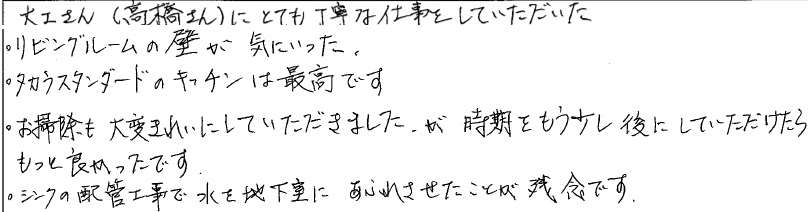 大工さん(高橋さん)にとても丁寧な仕事をしていただいた
・リビングルームの壁が気にいった.
・タカラスタンダードのキッチンは最高です
・お掃除も大変きれいにしていただきました.が時期をもう少し後にしていただけたら
もっと良かったです.
・シンクの配管工事で水を地下室にあふれさせたことが残念です.